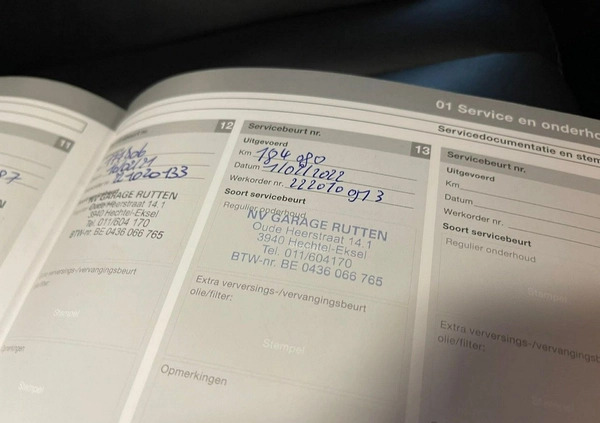 01 Service en onderho
Servicedocumentatie en stem
11
87
12
NV GARAGE RUTTEN
Oude Heerstraat 14.1
3940 Hechtel-Eksel
Tel. 011/604 170
BTW-nr. BE 0436 066 765
Extra verversings-/vervangingsbeurt
olie/filter:
Stempel
Opmerkingen
Servicebeurt nr. 13
Uitgevoerd
Km 184 080
Datum 1/02/2022
Werkorder nr.
Soort servicebeurt
Regulier onderhoud
NV GARAGE RUTTEN
Oude Heerstraat 14.1
3940 Hechtel-Eksel
Tel. 011/604170
BTW-nr. BE 0436 066 765
Extra verversings-/vervangingsbeurt
olie/filter:
Stempel
Opmerkingen
Servicebeurt nr.
Uitgevoerd
Km
Datum
Werkorder nr.
Soort servicebeurt
Regulier onderhoud
Stempel
Extra verversings-/vervangingsb
olie/filter:
Stempel